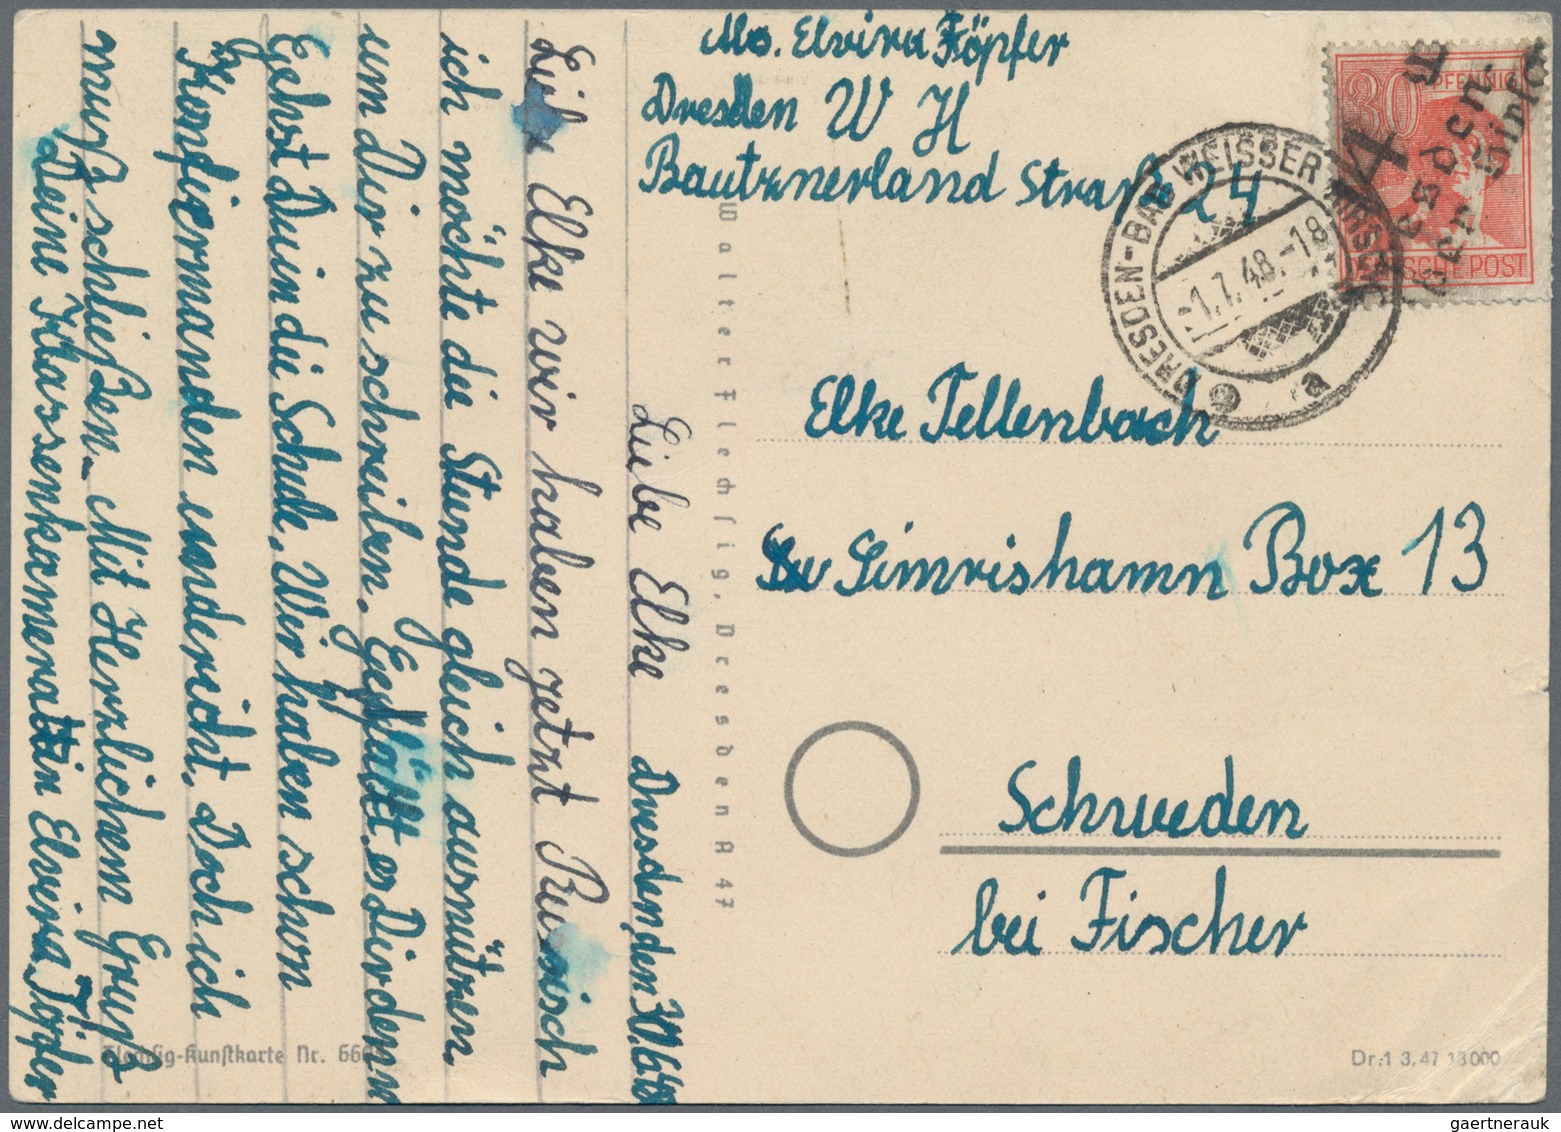 Abs. Elvira Töpfer
Dresden W H
Bautznerland Straße 24
30 PFENNIG
DEUTSCHE POST
14
Dresden
DRESDEN-BAD WEISSER HIRSCH
-1.7.48.-18
a
Elke Tellenbach
Simrishamn Box 13
Schweden
bei Fischer
Walter Flechsig, Dresden A 47
Dresden, den 30.6.48
Liebe Elke
Liebe Elke wir haben jetzt Russisch
ich möchte die Stunde gleich ausnützen,
um Dir zu schreiben. Gefällt es Dir denn
Gehst Du in die Schule. Wir haben schon
Konfiermanden underricht. Doch ich
muß schließen. Mit Herzlichem Gruß
Deine Klassenkameratin Elvira Töpfer
Flechsig-Kunstkarte Nr.
Dr.1 3.47 13000
gaertnerauk